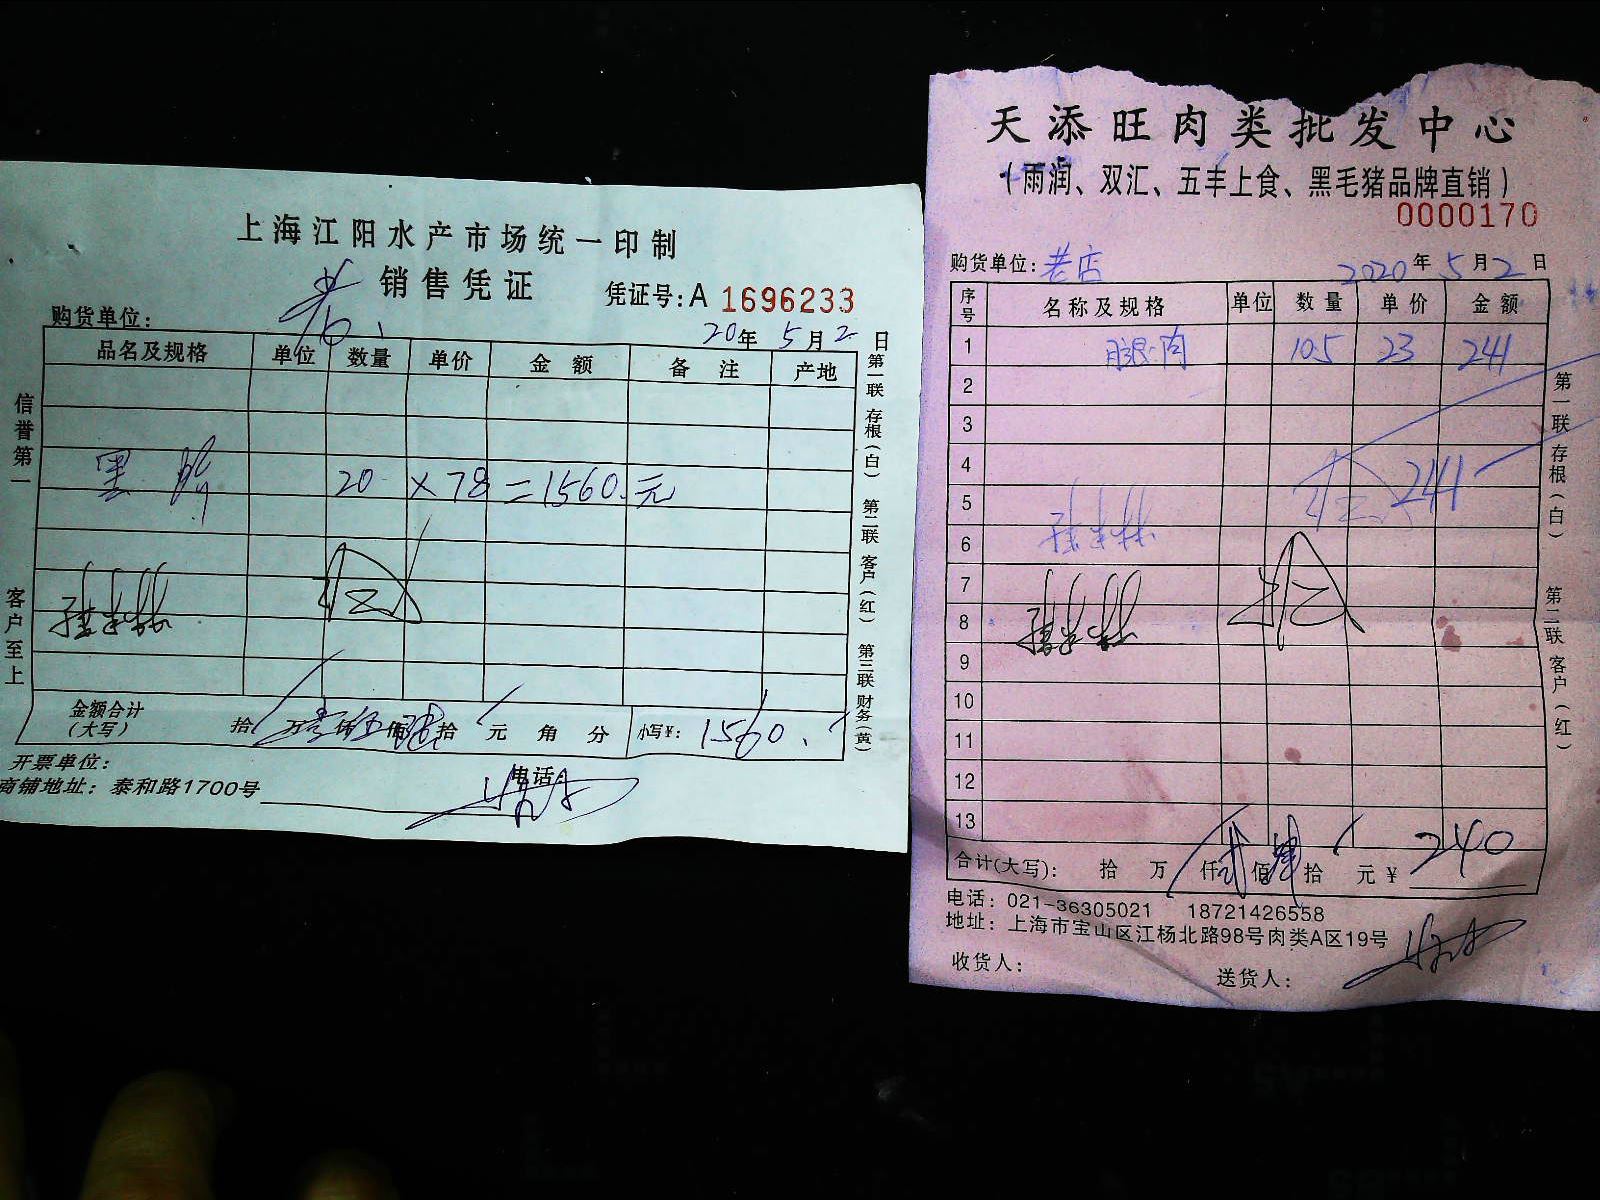 上海江阳水产市场统一印制
销售凭证
凭证号:A 1696233
购货单位:
20年 5月 2日
品名及规格 单位 数量 单价 金额 备注 产地
黑 20 × 78 = 1560.元
金额合计(大写) 拾 万 壹仟 伍佰 陆拾 元 角 分 小写¥: 1560.
开票单位:
商铺地址:泰和路1700号
电话:
信誉第一 客户至上
第一联 存根(白) 第二联 客户(红) 第三联 财务(黄)
天添旺肉类批发中心
(雨润、双汇、五丰上食、黑毛猪品牌直销)
0000170
购货单位:老店 2020年 5月 2日
序号 名称及规格 单位 数量 单价 金额
1 腿肉 10.5 23 241
2
3
4
241
5
6
7
8
9
10
11
12
13
合计(大写): 拾 万 仟 贰佰 肆拾 元¥ 240
电话:021-36305021 18721426558
地址:上海市宝山区江杨北路98号肉类A区19号
收货人: 送货人:
第一联 存根(白) 第二联 客户(红)